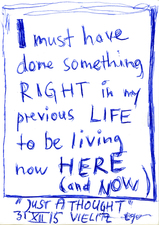 I must have
done something
RIGHT in my
previous LIFE
to be living
now HERE
(and NOW)
"JUST A THOUGHT"
31 XII 15 VIELITZ